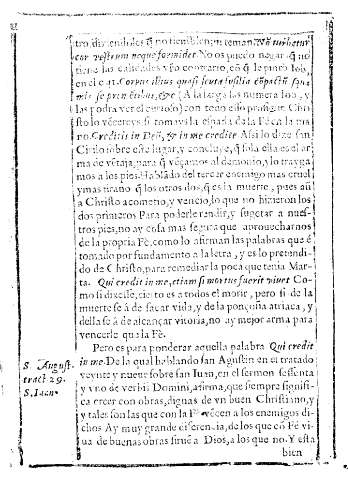 tro, diziendoles q̃ no tiemblen, ni teman. Nõ turbetur
cor vestrum neque formidet. No os puedo negar q̃ no
tiene las calidades y lo contrario, cõ q̃ le pintò Iob,
en el c. 41. Corpus illius quasi scuta fusilia cõpactũ squa
mis se prementibus, &c (A la larga las numera Iob, y
las podra ver el curioso) con todo esso prosigue Chri
sto lo vécereys si tomays la espada de la Fé ca la ma
no. Creditis in Deũ, & in me credite. Assi lo dize san
Cirilo sobre este lugar, y concluye, q̃ sola ella es el ar
ma de vẽtaja, para q̃ vẽçamos al demonio, y lo trayga
mos a los pies. Hablãdo del tercer enemigo mas cruel
y mas tirano q̃ los otros dos, q̃ es la muerte, pues aũ
a Christo acometio, y vencio, lo que no hizieron los
dos primeros Para poderle rendir, y sugetar a nues-
tros pies, no ay cosa mas segura que aprouecharnos
de la propia Fé, como lo afirman las palabras que é
tomado por fundamento a la letra, y es lo pretendi-
do de Christo, para remediar la poca que tenia Mar-
ta. Qui credit in me, etiam si mortus fuerit viuet Co-
mo si dixesse, cierto es a todos el morir, pero si de la
muerte se à de sacar vida, y de la ponçoña atriaca, y
della se à de alcançar vitoria, no ay mejor arma para
vencerle que la Fè.
Pero es para ponderar aquella palabra Qui credit
in me. De la qual hablando san Agustin en el tratado
veynte y nueue sobre san Iuan, en el sermon sessenta
y vno de verbis Domini, afirma, que siempre signifi-
ca creer con obras, dignas de vn buen Christiano, y
y tales son las que con la Fè vécen a los enemigos di-
chos Ay muy grande diferencia, de los que cõ Fè vi
ua de buenas obras siruẽ a Dios, a los que no. Y esta
bien
S. August.
tract. 29.
S. Ioan.